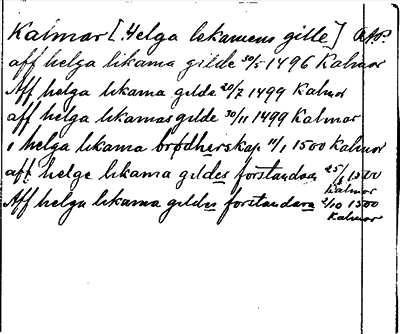 Kalmar [Helga lekamens gille]
aff helga likama gilde 30/5 1496 Kalmar
Aff helga lekama gilde 20/7 1499 Kalmar
aff helga lekamas gilde 30/11 1499 Kalmar
i helga lekama brødherskap 11/1 1500 Kalmar
aff helge lekama gildes forstandara 25/ 1500 Kalmar
Aff helga lekama gildes forstandara 2/10 1500 Kalmar